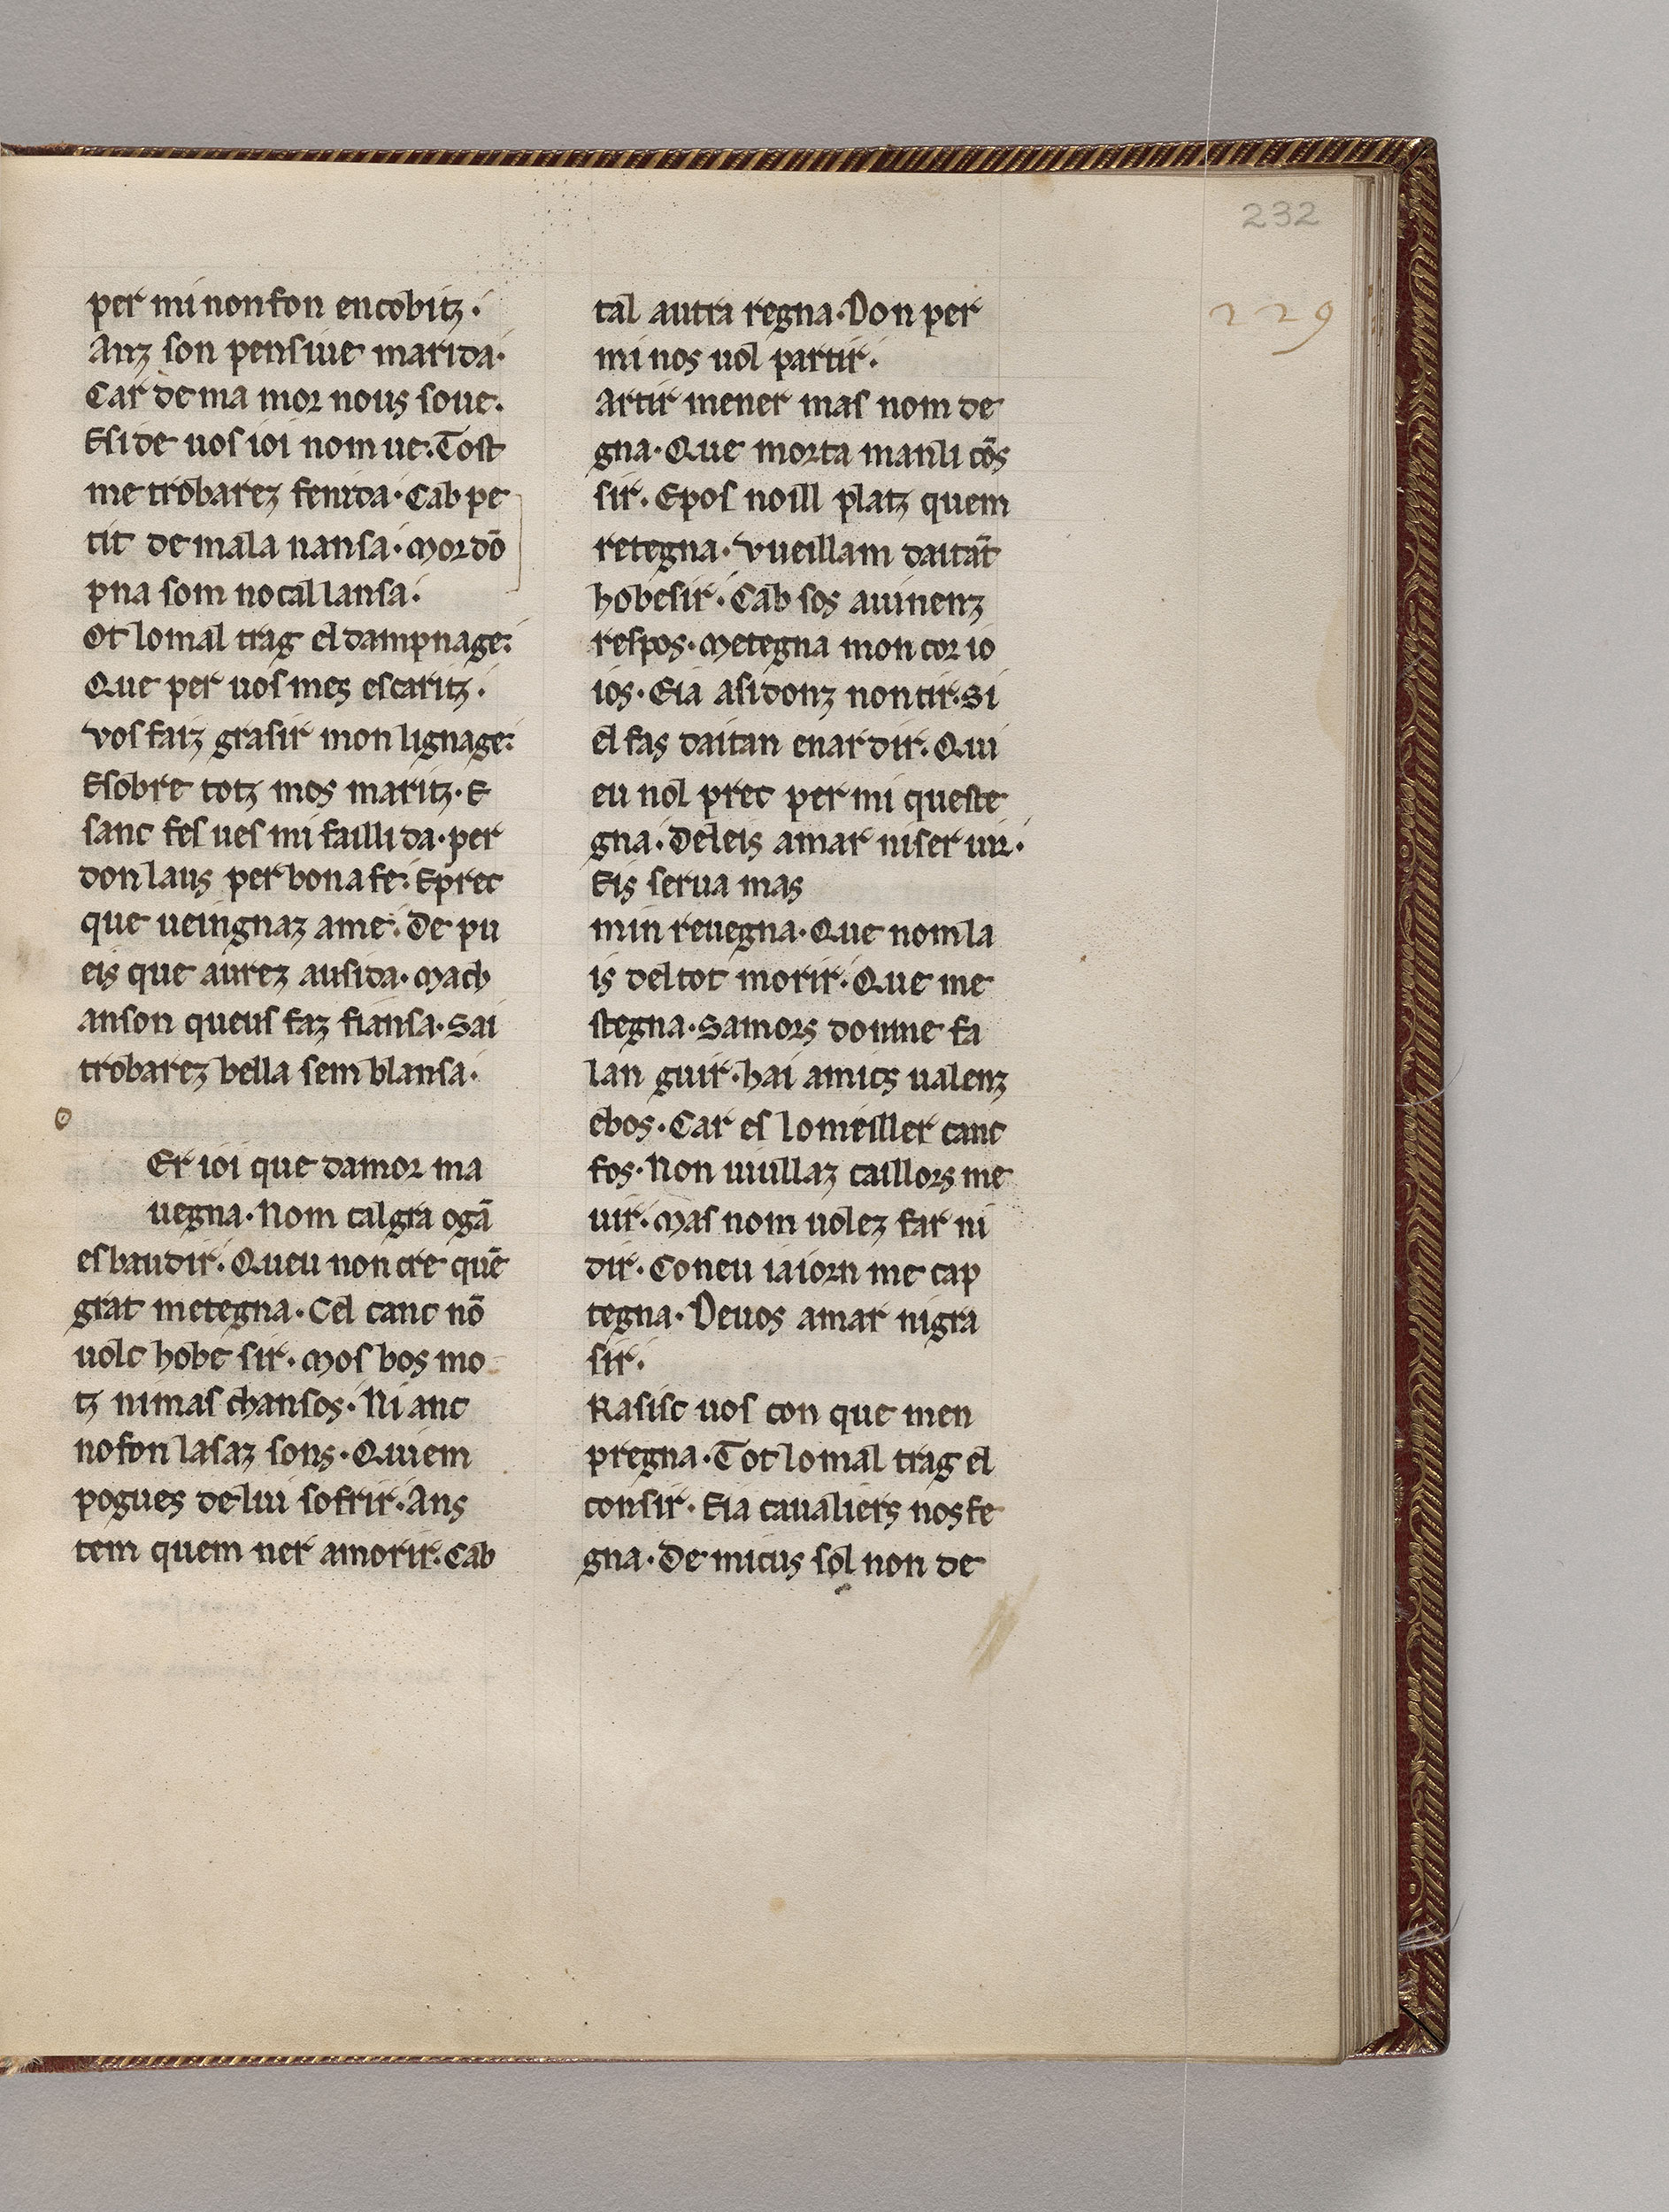 232
229
per mi non fon encobitz.
Anz son pensiue marrida.
Car de ma mor nous soue.
Esi de uos ioi nom ue. Tost
me trobarez fenida. Cab pe
tit de mala nansa. Mor dō
pna som no cal lansa.
Ot lo mal trag el dampnage.
Que per uos mes escaritz.
Vos faiz grasir mon lignage.
Esobre totz mos maritz. E
sanc fes ues mi failli da. per
don laus per bona fe. Eprec
que ueingnaz ame. De pu
eis que aurez ausida. Mach
anson queus faz fiansa. Sai
trobarez bella sem blansa.
o
Er ioi que damor ma
uegna. Nom calgra ogā
esbaudir. Queu non cre quē
grat metegna. Cel canc nō
uolc hobe sir. Mos bos mo
tz ni mas chansos. Ni anc
no fon lasaz sons. Quiem
pogues de lui sofrir. Ans
tem quem ner amorir. Cab
tal autra regna. Don per
mi nos uol partir.
Artir mener mas nom de
gna. Que morta manli cōs
sir. Epos noill platz quem
retegna. Vueillam daitāt
hobesir. Cab sos auinenz
respos. Metegna mon cor io
ios. Eia asidonz non tir. Si
el fas daitan enardir. Qui
eu nol prec per mi queste
gna. Deleis amar niser uir.
Eis serua mas
min reuegna. Que nom la
is del tot morir. Que me
stegna. Samors don me fa
lan guir. hai amics ualenz
ebos. Car es lo meiller canc
fos. Non uuillaz caillors me
uir. Mas nom uolez far ni
dir. Con eu ia iorn me cap
tegna. De uos amar nigra
sir.
Rasisc uos con que men
pregna. Tot lo mal trag el
consir. Eia caualiers nos fe
gna. De mi cus sol non de